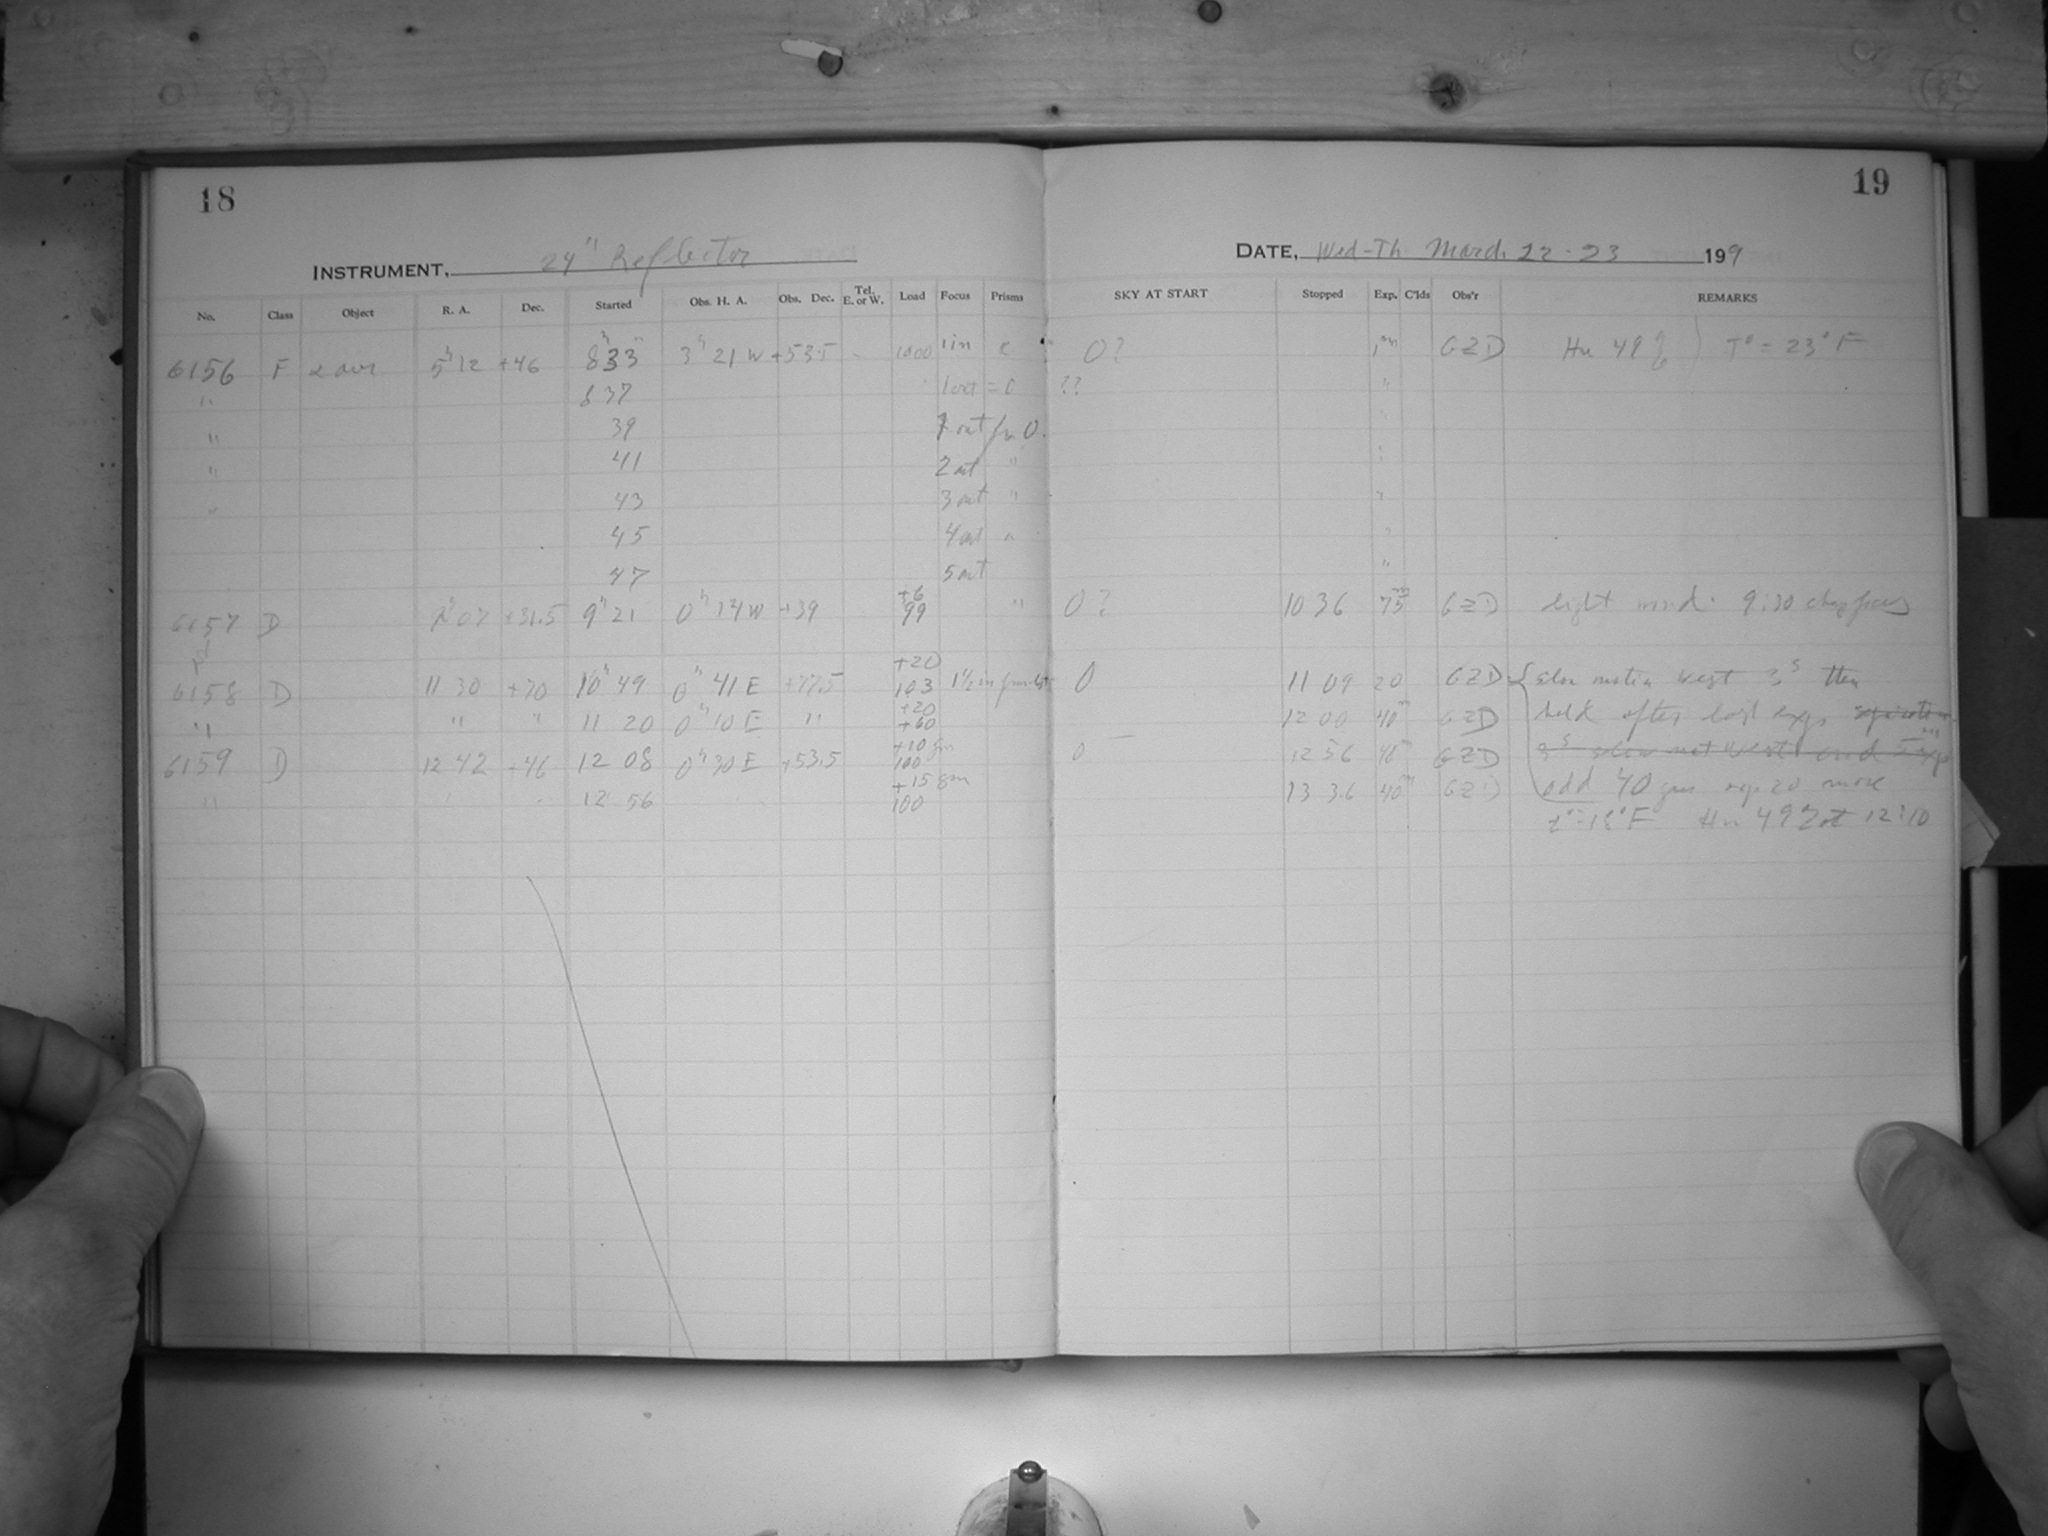 18
19
INSTRUMENT, 24" Reflector
DATE, Wed-Th March 22-23 199
No. Class Object R. A. Dec. Started Obs. H. A. Obs. Dec. Tel. E. or W. Load Focus Prisms SKY AT START Stopped Exp. C'lds Obs'r REMARKS
6156 F α aur 5h 12 +46 8h 33m 3h 21 W +53.5 - 1000 1 in c 0? 1m GZD Hu 49% T° = 23°F
" 8 37 1 out = 0 ?? "
" 39 1 out fm 0.
" 41 2 out " "
" 43 3 out " "
45 4 out "
47 5 out "
6157 D 9h 07 +31.5 9h 21 0h 14 W +39 +6 99 " 0? 10 36 75m GZD light wind. 9:30 chg focus
6158 D 11 30 +70 10h 49 0h 41 E +77.5 +20 103 1½ in 0 11 09 20 GZD slow motion west 3s then
" " " 11 20 0h 10 E " +20 +60 12 00 40m GZD held after last exp
6159 D 12 42 +46 12 08 0h 30 E +53.5 +10 gm 100 0 12 56 GZD 3s slow mot West and
" 12 56 +15 gm 100 13 36 40m GZD add 40 gms 20 more
F Hu 49% at 12:10